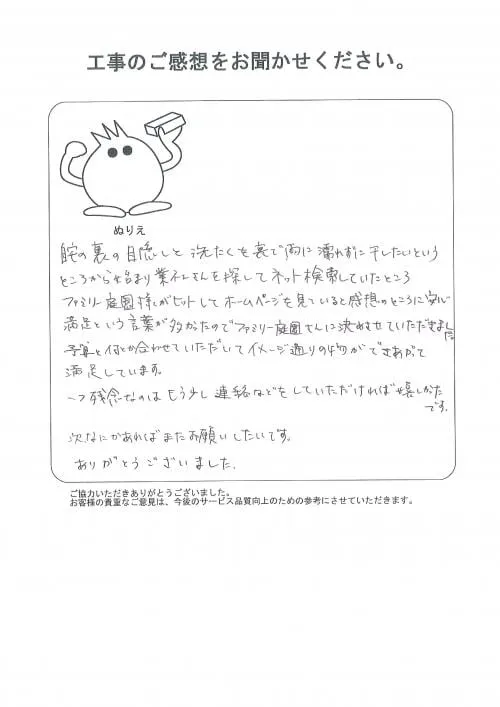 工事のご感想をお聞かせください。
ぬりえ
自宅の裏の目隠しと洗たくを裏で雨に濡れずに干したいという
ところから始まり業者さんを探してネット検索していたところ
ファミリー庭園様がヒットしてホームページを見ていると感想のところに安心
満足という言葉が多かったのでファミリー庭園さんに決めさせていただきました
予算と何とか合わせていただいてイメージ通りの物ができあがって
満足しています。
一つ残念なのはもう少し連絡などをしていただければ嬉しかった
です。
次なにかあればまたお願いしたいです。
ありがとうございました。
ご協力いただきありがとうございました。
お客様の貴重なご意見は、今後のサービス品質向上のための参考にさせていただきます。